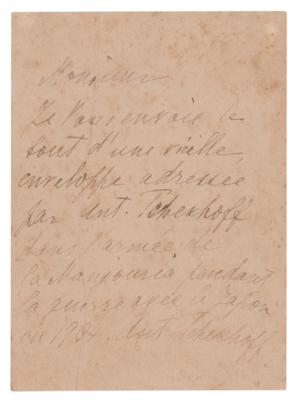 Monsieur
Je Vous envoie le
tout d'une vieille
enveloppe adressée
par Ant. Tchekhoff
dans l'armée de
la Manjourie pendant
la guerre avec le Japon
en 1904. Ant Tchekhoff